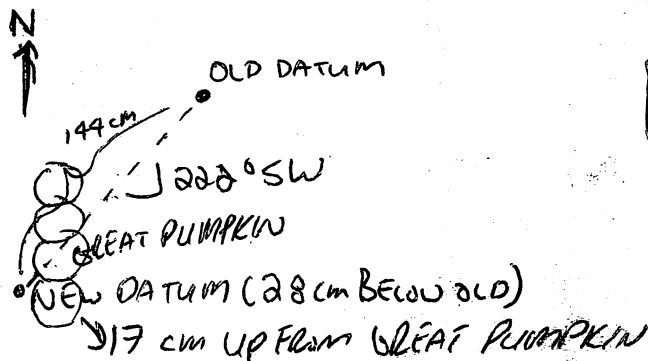 N
OLD DATUM
144cm
222° SW
GREAT PUMPKIN
NEW DATUM (28cm BELOW OLD)
17 cm UP FROM GREAT PUMPKIN